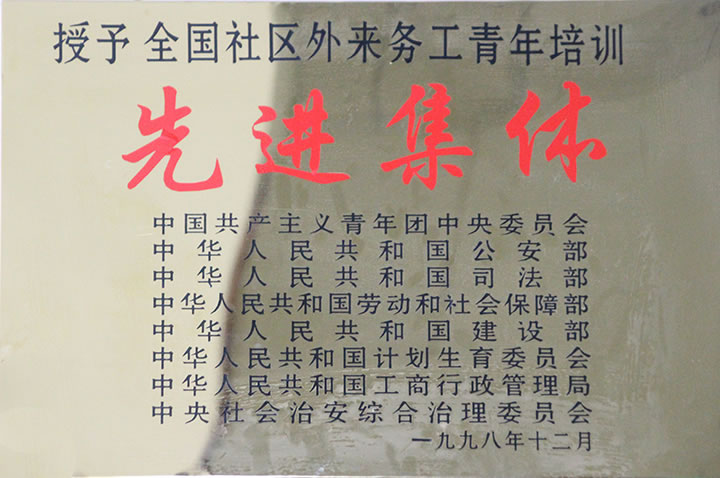 授予 全国社区外来务工青年培训
先进集体
中国共产主义青年团中央委员会
中华人民共和国公安部
中华人民共和国司法部
中华人民共和国劳动和社会保障部
中华人民共和国建设部
中华人民共和国计划生育委员会
中华人民共和国工商行政管理局
中央社会治安综合治理委员会
一九九八年十二月